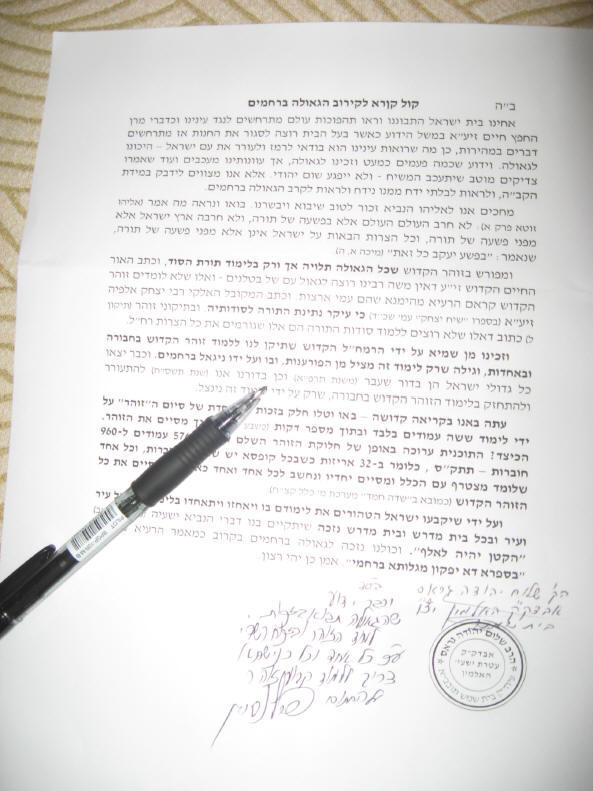 ב"ה
קול קורא לקירוב הגאולה ברחמים
אחינו בית ישראל התבוננו וראו תהפוכות עולם מתרחשים לנגד עינינו וכדברי מרן
החפץ חיים זיע"א במשל הידוע כאשר בעל הבית רוצה לסגור את החנות אז מתרחשים
דברים במהירות, כן מה שרואות עינינו הוא בודאי לרמז ולעורר את עם ישראל – היכונו
לגאולה. וידוע שכמה פעמים כמעט וזכינו לגאולה, אך עוונותינו מעכבים ועוד שאמרו
צדיקים מוטב שיתעכב המשיח - ולא ייפגע שום יהודי. אלא אנו מצווים לידבק במידת
הקב"ה, ולראות לבלתי ידח ממנו נידח ולראות לקרב הגאולה ברחמים.
מחכים אנו לאליהו הנביא זכור לטוב שיבוא ויבשרנו. בואו ונראה מה אמר (אליהו
זוטא פרק א): לא חרב העולם אלא בפשעה של תורה, ולא חרבה ארץ ישראל אלא
מפני פשעה של תורה, וכל הצרות הבאות על ישראל אינן אלא מפני פשעה של תורה,
שנאמר: "בפשע יעקב כל זאת" (מיכה א, ה)
ומפורש בזוהר הקדוש שכל הגאולה תלויה אך ורק בלימוד תורת הסוד, וכתב האור
החיים הקדוש זיע"א דאין משה רבינו רוצה לגאול עם של בטלנים - ואלו שלא לומדים זוהר
הקדוש קראם הרעיא מהימנא שהם עמי ארצות. וכתב המקובל האלקי רבי יצחק אלפיה
זיע"א (בספרו "שיח יצחק" עמ' שכ"ד) כי עיקר נתינת התורה לסודותיה. ובתיקוני זוהר (תיקון
ל) כתוב דאלו שלא רוצים ללמוד סודות התורה הם אלו שגורמים את כל הצרות רח"ל.
וזכינו מן שמיא על ידי הרמח"ל הקדוש שתיקן לנו ללמוד זוהר הקדוש בחבורה
ובאחדות, וגילה שרק לימוד זה מציל מן הפורענות, ובו ועל ידו ניגאל ברחמים. וכבר יצאו
כל גדולי ישראל הן בדור שעבר (משנת תרפ"א) וכן בדורנו אנו (שנת תשס"ח) להתעורר
ולהתחזק בלימוד הזוהר הקדוש בחבורה, שרק על ידי לימוד זה נינצל.
עתה באנו בקריאה קדושה – באו וטלו חלק בזכות של סיום ה"זוהר" על
ידי לימוד ששה עמודים בלבד ובתוך מספר דקות מסיים את הזוהר.
הכיצד! התוכנית ערוכה באופן של חלוקת הזוהר השלם עמודים ל-960
חוברות – תתק"ס, כלומר ב-32 אריזות כשבכל קופסא יש וכל אחד
שלומד מצטרף עם הכלל ומסיים יחדיו ונחשב לכל אחד ואחד את כל
הזוהר הקדוש (כמובא ב"שדה חמד" מערכת מ' כלל קצ"ח)
ועל ידי שיקבעו ישראל הטהורים את לימודם בו ויאחזו ויתאחדו עיר
ועיר ובכל בית מדרש ובית מדרש נזכה שיתקיים בנו דברי הנביא ישעיה
"הקטן יהיה לאלף". וכולנו נזכה לגאולה ברחמים בקרוב כמאמר הרעיא
"בספרא דא יפקון מגלותא ברחמי". אמן כן יהי רצון.
שלום יהודה גראס
אבדק"ק האלמין
הרב שלום יהודה גראס
אבדק"ק
עטרת ישעי'
האלמין
PILOT